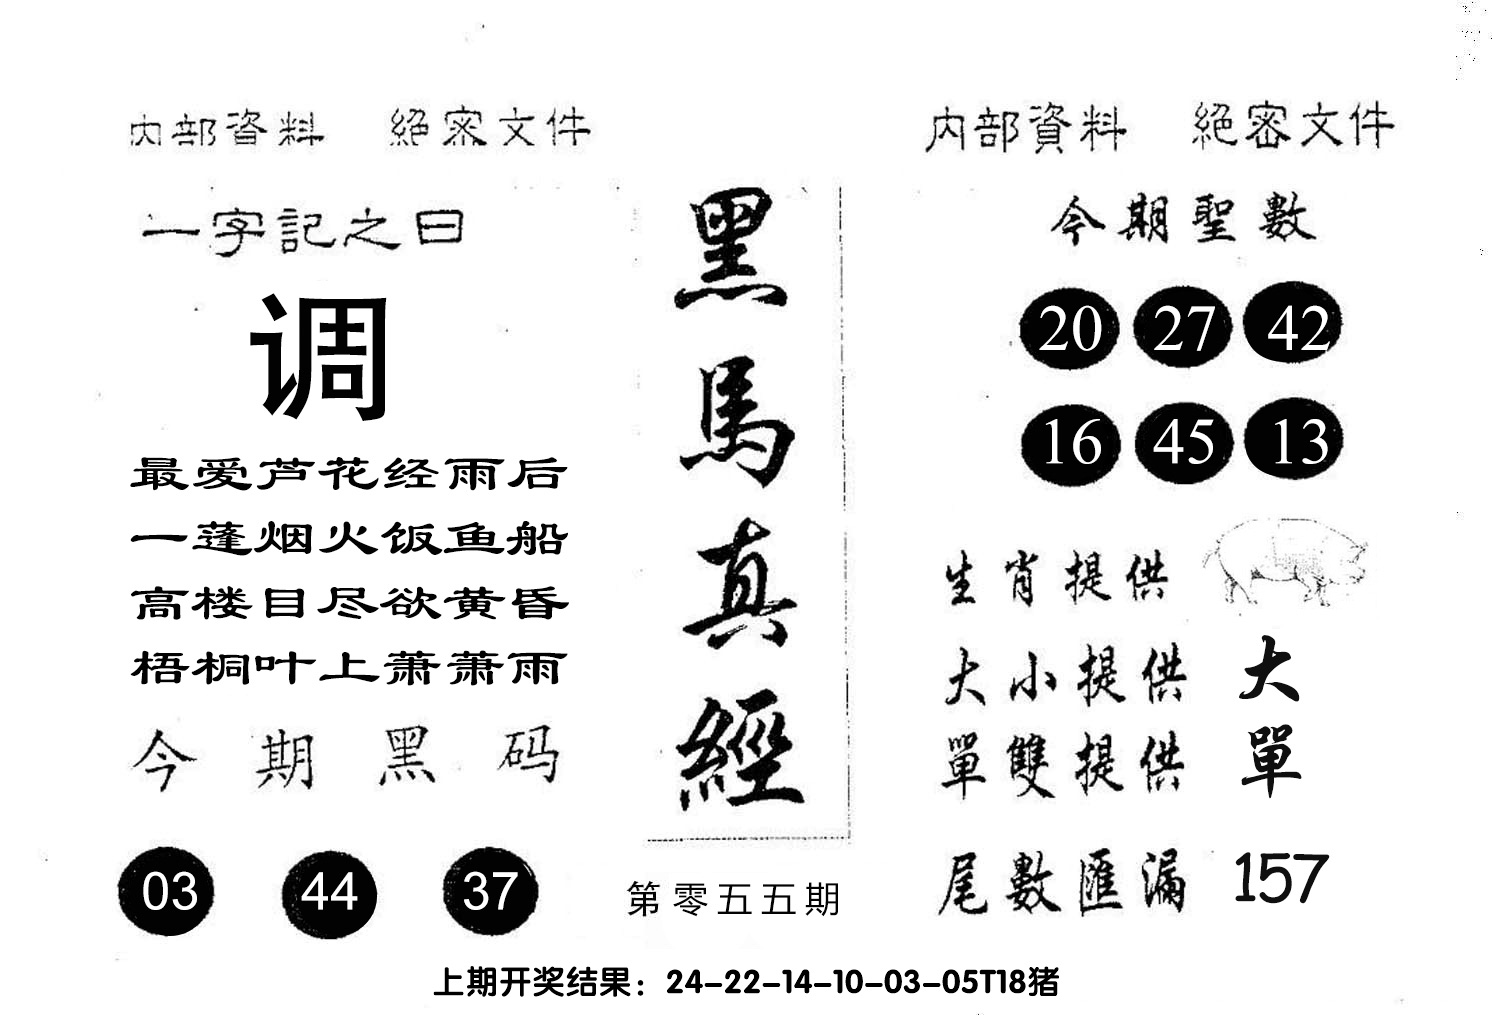 内部資料 絕密文件
一字記之曰
调
最爱芦花经雨后
一蓬烟火饭鱼船
高楼目尽欲黄昏
梧桐叶上萧萧雨
今期黑码
03 44 37
黑馬真經
第零五五期
内部資料 絕密文件
今期聖數
20 27 42
16 45 13
生肖提供
大小提供 大
單雙提供 單
尾數匯漏 157
上期开奖结果：24-22-14-10-03-05T18猪